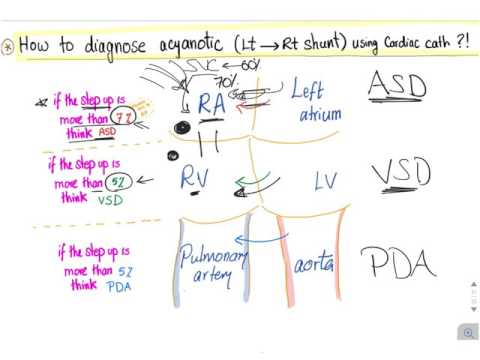 * How to diagnose acyanotic (Lt → Rt shunt) using Cardiac cath ?!
SVC → 60%
70%
if the step up is
more than 7%
think ASD
RA
Left
atrium
ASD
if the step up is
more than 5%
think VSD
RV
LV
VSD
if the step up is
more than 5%
think PDA
Pulmonary
artery
aorta
PDA